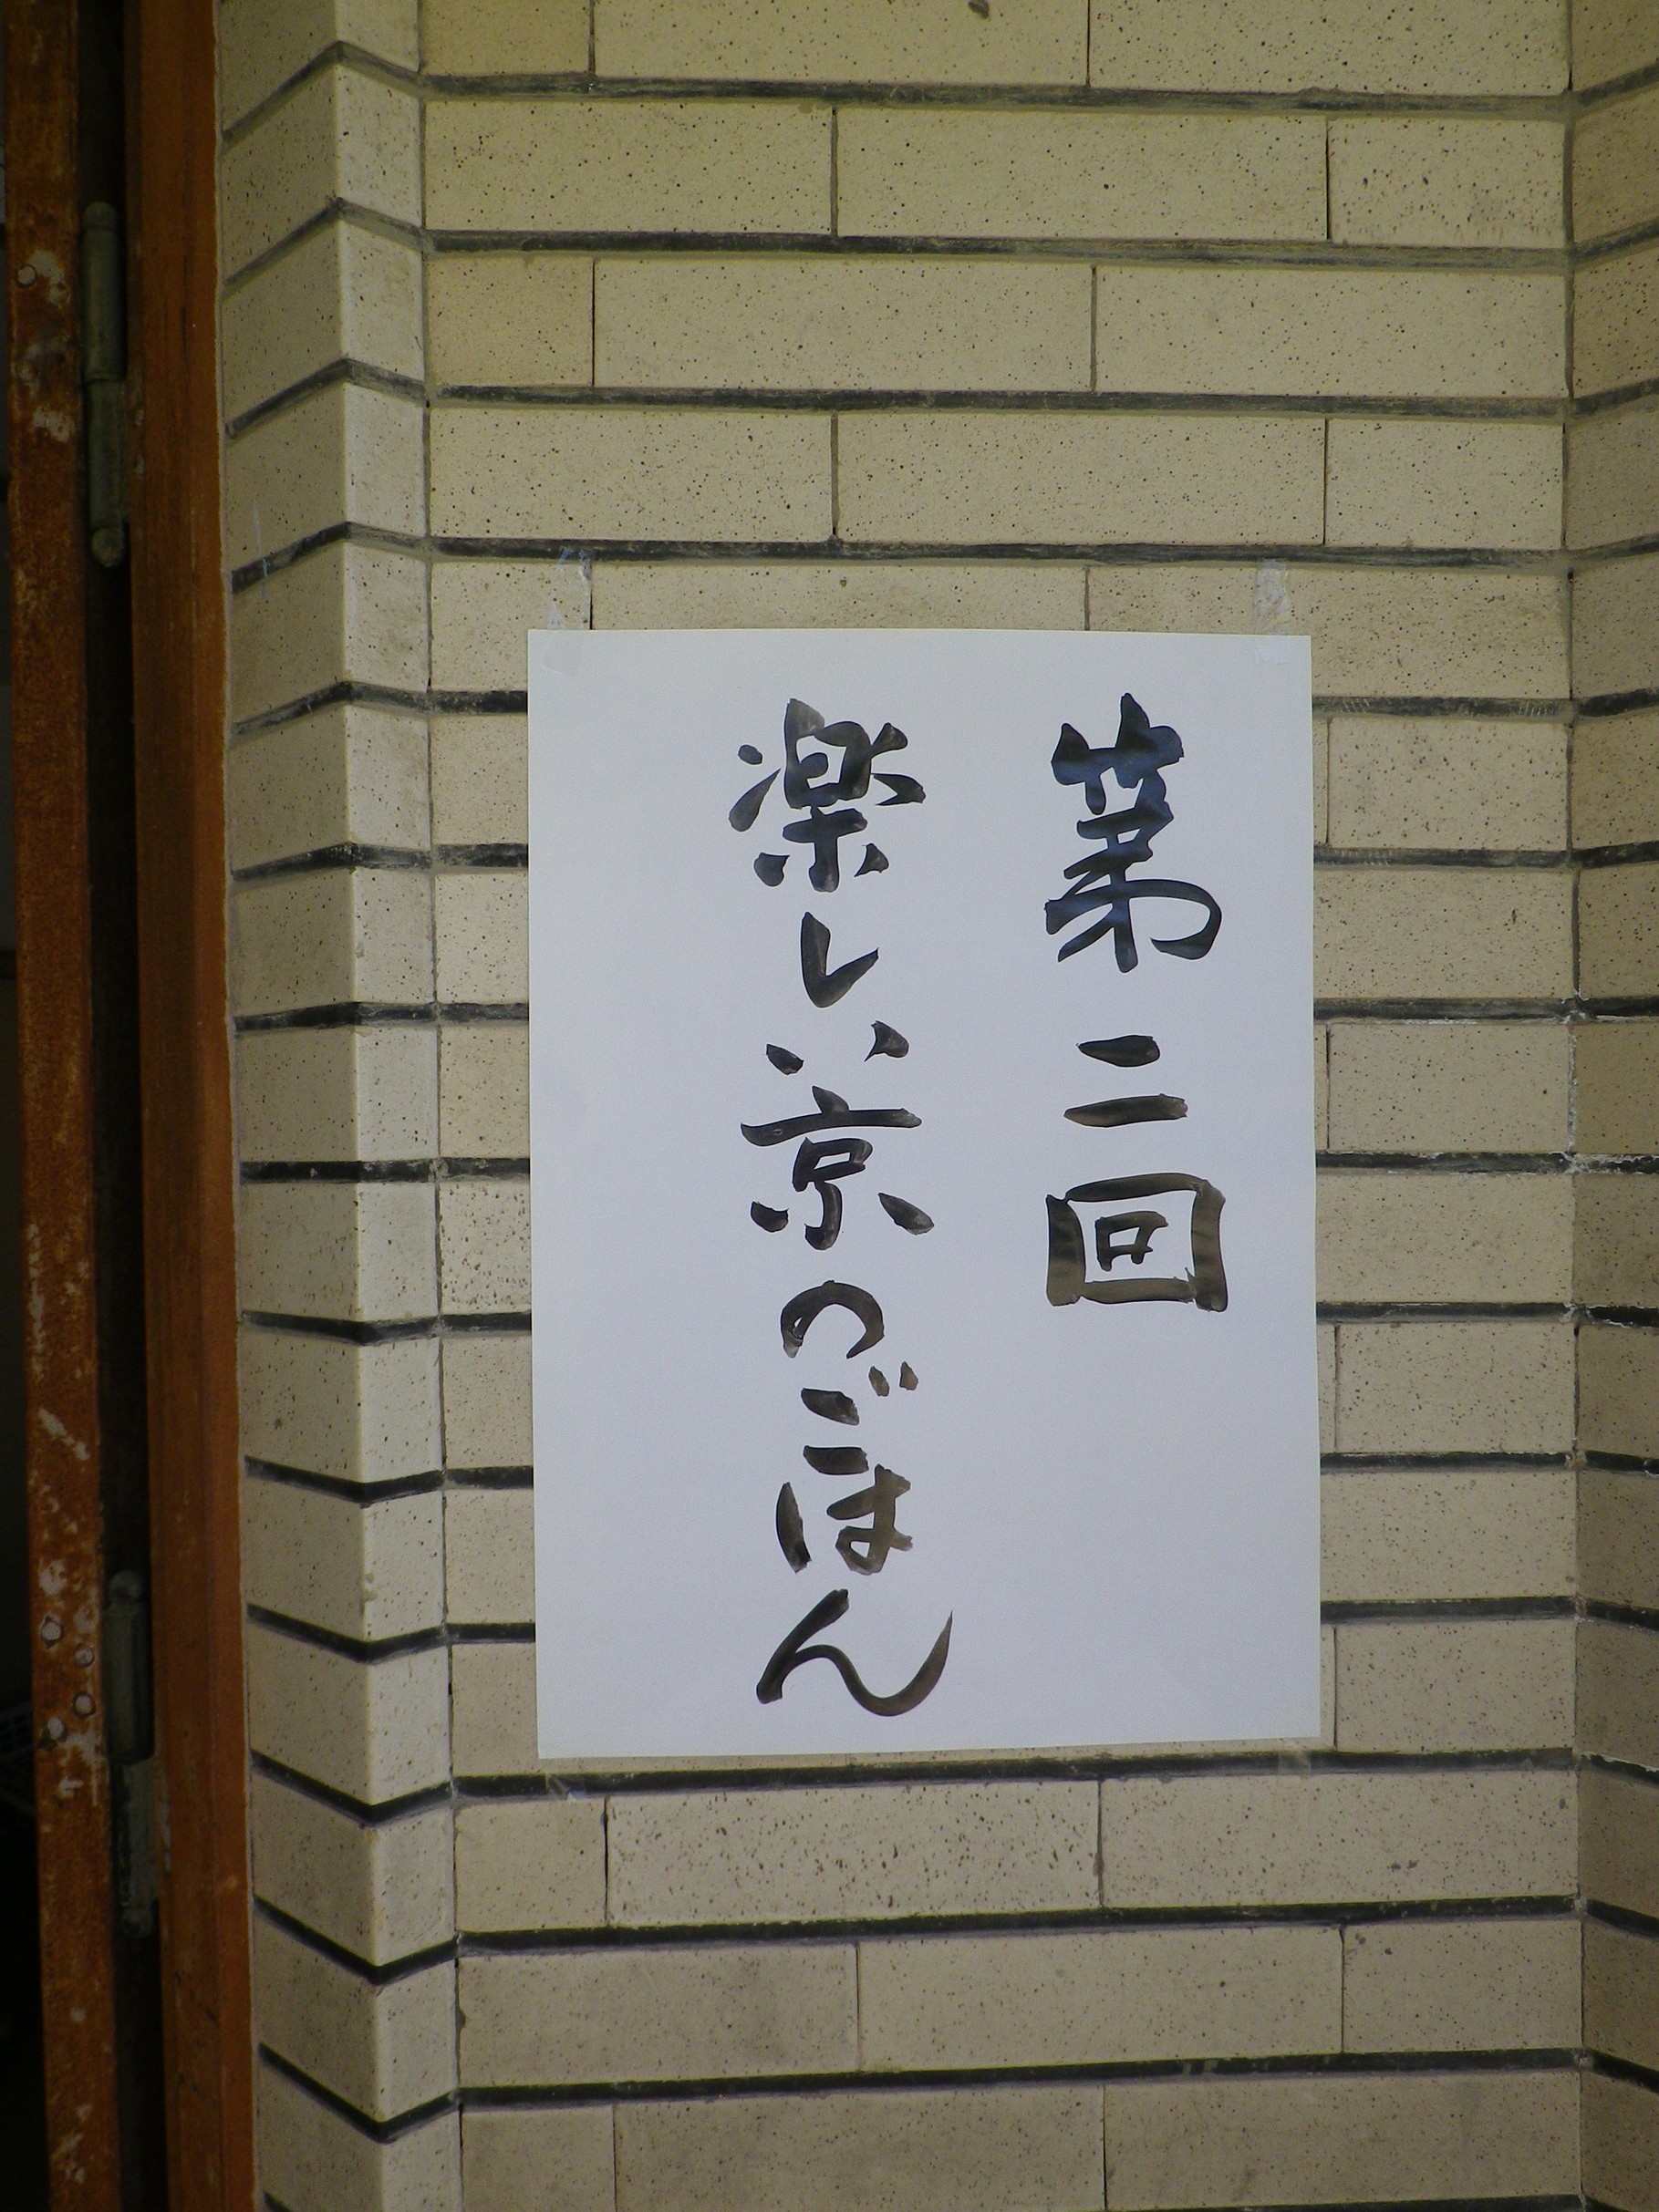 第二回
楽しい京のごはん